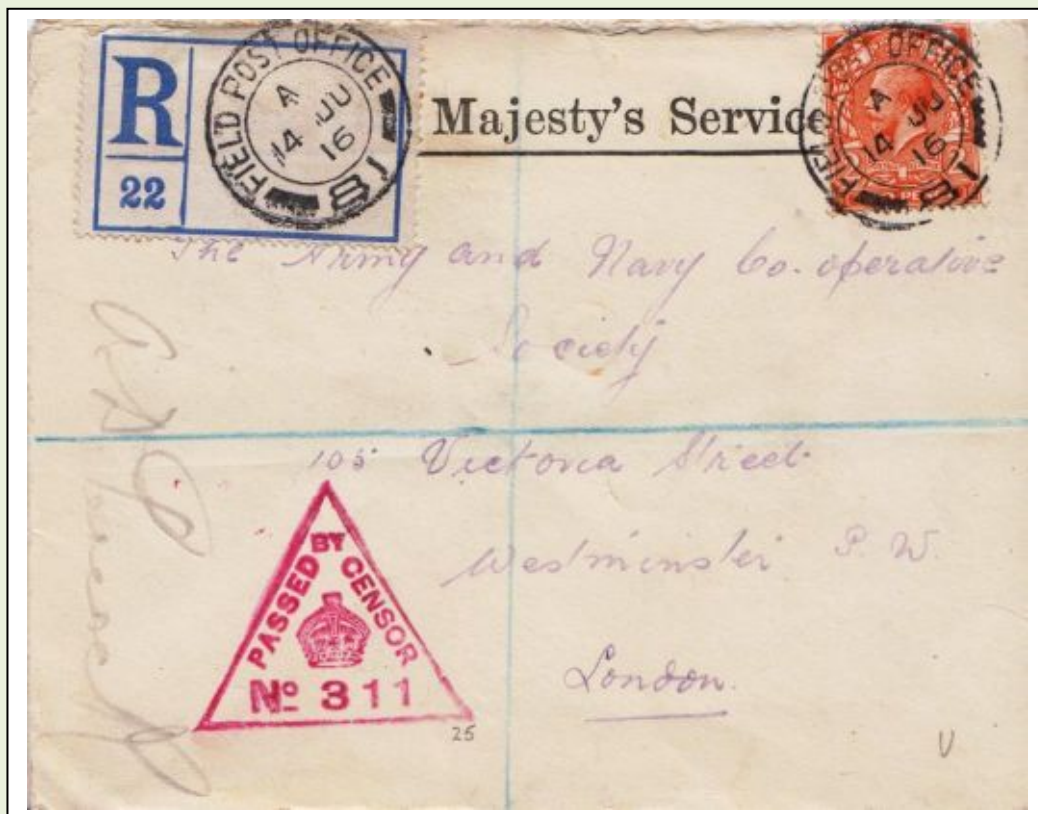 R
22
FIELD POST OFFICE
A
14 JU
16
18
Majesty's Service
FIELD POST OFFICE
A
14 JU
16
18
The Army and Navy Co.operative
Society
105 Victoria Street
Westminster S.W.
London.
PASSED BY CENSOR
No 311
25
U